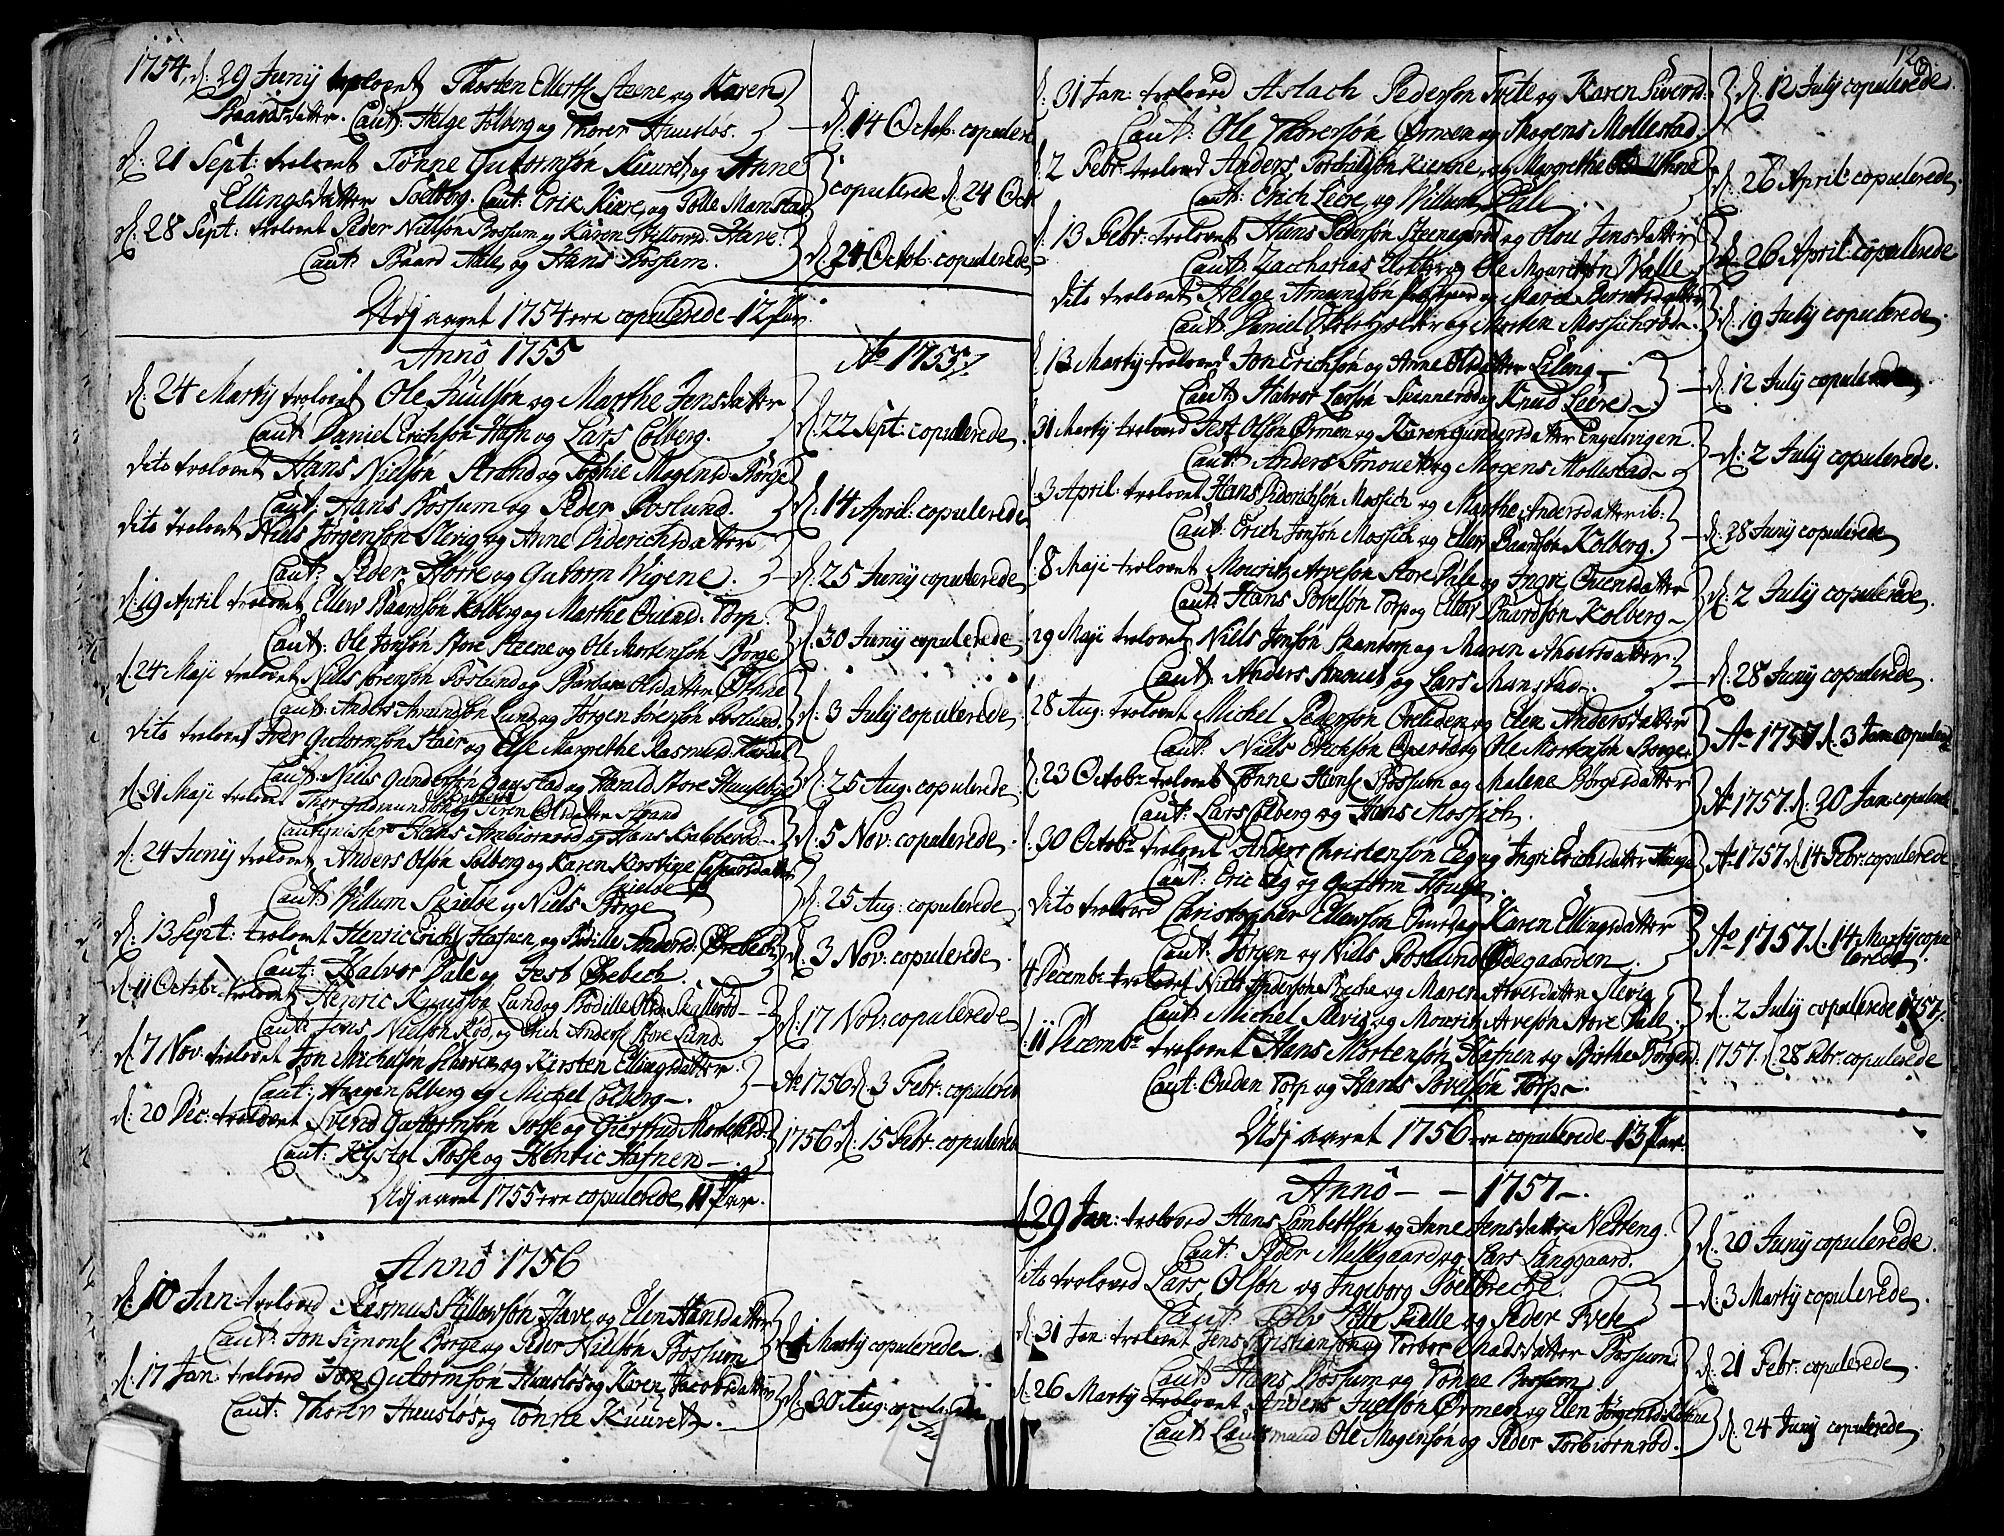 1754, d. 29 Junij trolovet Torsten Ellefs: Steene og Karen
Baardsdatter. Caut: Helge Solberg og Thorer Huuslos.
d. 14 Octob: copulere
d. 21 Sept: trolovet Tønne Gutormsøn Kuuret og Anne
Ellingsdatter Solberg. Caut: Erik Kiære og Tolle Manstad
copulerede d. 24 Oct
d. 28 Sept: trolovet Peder Nielsøn Bossum og Karen Have.
Caut: Baard Aale og Hans Bossum.
d. 24 Octob: copulerede
Udj aaret 1754 ere copulerede 12 Par.
Anno 1755
Ao 1755
d. 24 Martij trolovet Ole Juulsøn og Marthe Jensdatter
Caut: Daniel Erichsøn Hafn og Lars Colberg.
d. 22 Sept: copulerede
dito trolovet Hans Nielsøn Strand og Sophie Mogensd: Borge
Caut: Hans Bossum og Peder Boslund.
d. 14 April: copulerede
dito trolovet Niels Jørgensøn Slevig og Anne Diderichsdatter
Caut: Peder og Gutorm Vigene.
d. 25 Junij copulerede
d. 19 April trolovet Ellew Baardsøn Kolberg og Marthe Torp.
Caut: Ole Jonsøn Store Steene og Ole Mortensøn Borge
d. 30 Junij copulerede
d. 24 Maji trolovet Niels Sørensøn Boslund og Barbara Olsdatter
Caut: Anders Amundsøn Lund og Jørgen Sørensøn Boslund
d. 3 Julij copulerede
dito trolovet Iver Gutormsøn og Else Margrethe Rasmusd:
Caut: Niels Gundersøn Gaustad og Harald Store Huuseby
d. 25 Aug: copulerede
d. 31 Maji trolovet Thor Gudmunds og Siren Olsdatter Strand
Cautionister Hans Anbiørnrød og Hans Krabberød
d. 5 Nov: copulerede
d. 24 Junij trolovet Anders Olsøn Solberg og Karen Kirstine Caspersdatter
Skieløe
Caut: Willum Skieløe og Niels Borge
d. 25 Aug: copulerede
d. 13 Sept: trolovet Henric Erichs: Hafnen og Bodille Andersd: Ørebech
Caut: Halvor Dale og Jest Ørebech.
d. 3 Nov: copulerede
d. 11 Octobr: trolovet Henric Knudsøn Lund og Bodille Olsd: Skallerød
Caut: Jens Nielsøn Rød og Erich Anders: Store Lund
d. 17 Nov: copulerede
d. 7 Nov: trolovet Jon Michelsøn og Kirsten Ellingsdatter
Caut: Haagen Colberg og Michel Colberg.
Ao 1756 d. 3 Febr: copulere
d. 20 Dec: trolovet Svend Gutormsøn Rosse og Giertrud Mortensd:
Caut: Kistol Rosse og Henric Hafnen
1756 d. 15 Febr: copulered
Udj aaret 1755 ere copulerede 11 Par.
Anno 1756
d. 10 Jan: trolovd Rasmus Pillowsøn Have og Elen Hansdatter
Caut: Jon Simons: Borge og Peder Nielsøn Bossum
d. 1 Martij copulerede
d. 17 Jan: trolovd Jon Gutormsøn Huuslos og Karen Jacobsdatter
Caut: Thorer Huuslos og Tønne Kuuret.
d. 30 Aug: copulerede
12
d. 31 Jan: trolovd Aslach Pedersøn Tvete og Karen Siversd:
Caut: Ole Thoresøn Ørmen og Mogens Mollestad
d. 12 Julij copulerede
d. 2 Febr: trolovd Anders Torchilsøn Kienne og Margrethe Uthne
Caut: Erich Leere og Willum Dale
d. 26 April: copulerede
d. 13 Febr: trolovet Hans Pedersøn Steenegerød og Olou Jensdatter
Caut: Zaccharias Holter og Ole Mouritsøn Walle
d. 26 April: copulerede
dito trolovet Helge Amundsøn og Maria Berntsdatter
Caut: Daniel og Morten Mossichrød.
d. 19 Julij copulerede
d. 13 Martij trolovd Jon Erichsøn og Anne Olsdatter Eileng
Caut: Halvor Larsøn Skinnerød og Knud Leere
d. 12 Julij copulerede
31 Martij trolovd Jest Olsøn Ørmen og Karen Gundersdatter Engelsvigen
Caut: Anders Smouet og Mogens Mollestad
d. 2 Julij copulerede.
d. 3 April: trolovet Hans Diderichsøn Mossich og Marthe Andersdatter ib:
Caut: Erich Jonsøn Mossich og Ellew Baardsøn Kolberg.
d. 28 Junij copulerede
d. 8 Maji trolovet Mouritz Arvesøn Store Dale og Ingri Ouensdatter
Caut: Hans Povelsøn Torp og Ellew Baardsøn Kolberg
d. 2 Julij copulerede.
29 Maji trolovet Niels Jonsøn Skantorp og Maren
Caut: Anders Smouet og Lars Manstad.
d. 28 Junij copulerede
28 Aug: trolovd Michel Pedersøn Øreliden og Elen Andersdatter
Caut: Niels Erichsøn og Ole Mortensøn Borge
Ao 1757 d. 3 Jan: copulered
d. 23 Octobr: trolovet Tønne Hans: Bossum og Malene Børgesdatter
Caut: Lars Colberg og Hans Mossich.
Ao 1757. d. 20 Jan: copulerede
d. 30 Octobr trolovet Anders Christensøn Eeg og Ingri Erichsdatter Hauge
Caut: Eric Eeg og Gutorm Houge.
Ao 1757 d. 14 Febr: copulerede
dito trolovd Christopher Ellewsøn og Karen Ellingsdatter
Caut: Jørgen og Niels Boslund Ødegaarden
Ao 1757. d. 14 Martij copu
lerede
4 Decembr: trolovet Niels Andersøn og Maren Slevig
Caut: Michel Slevig og Mourits Arvesøn Store Dale
d. 2 Julij copulerede 1757.
d. 11 Decembr trolovet Hans Mortensøn Hafnen og Birthe Jørgensd:
Caut: Ouden Torp og Hans Povelsøn Torp.
1757. d. 28 Febr: copulerede
Udj aaret 1756 ere copulerede 13 Par.
Anno 1757
d. 29 Jan: trolovd Hans Lambertsøn og Anne Jensdatter Nesteng.
Caut: Peder Mellegaard og Lars Langgaard.
d. 20 Junij copulerede.
dito trolovd Lars Olsøn og Ingeborg Soelbrecke.
Caut: Lille Fielle og Peder Tvete
d. 3 Martij copulerede.
d. 31 Jan: trolovet Jens Christiansøn og Torbor Madsdatter Bossum.
Caut: Hans Bossum og Tønne Bossum
d. 21 Febr: copulerede
d. 26 Martij trolovet Anders Juelsøn Ørmen og Elen Jørgensd:
Caut: Lausmand Ole Mogensøn og Peder Torbiørnrød.
d. 24 Junij copulerede